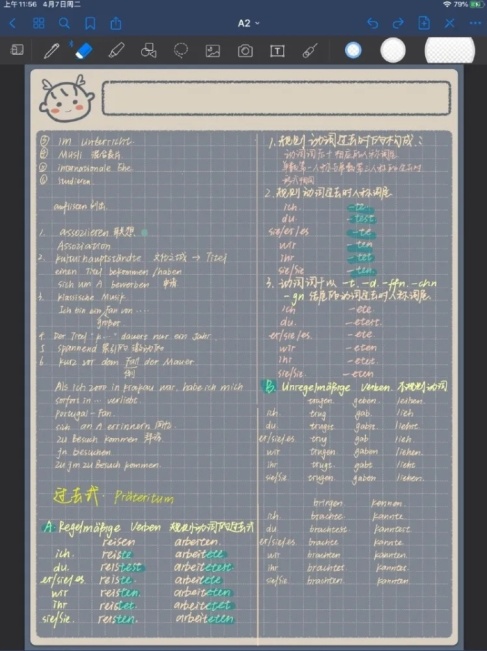 上午11:56 4月7日周二
79%
A2
T
① Im Unterricht
② Musik
③ internationale Ehe
④ studieren
auflisten 列出
1. assoziieren 联想
Assoziation
2. Kulturhauptstädte 文化之城 → Titel
einen Titel bekommen/haben
sich um A bewerben 申请
3. klassische Musik
Ich bin ein Fan von ……
großer
4. Der Titel "K…" dauert nur ein Jahr.
5. spannend
6. kurz vor dem Fall der Mauer
Als ich 2010 in Krakau war, habe ich mich
sofort in … verliebt.
Portugal-Fan.
sich an A erinnern
zu Besuch kommen 拜访
jn besuchen
zu jm zu Besuch kommen.
过去式. Präteritum
A. Regelmäßige Verben 规则动词的过去式
reisen arbeiten.
ich. reiste arbeitete
du. reistest arbeitetest
er/sie/es. reiste. arbeitete.
wir reisten. arbeiteten
ihr reistet. arbeitetet
sie/Sie. reisten. arbeiteten
1. 规则动词过去时的构成:
2. 规则动词过去时人称词尾
ich -te
du -test
sie/er/es -te
wir -ten
ihr -tet
sie/Sie -ten
3. 动词词干以 -t, -d, -ffn, -chn
-gn 结尾的动词过去时人称词尾
ich -ete
du. -etest.
er/sie/es. -ete
wir -eten
ihr -etet.
sie/Sie -eten
B. Unregelmäßige Verben. 不规则动词
tragen geben leihen.
ich. trug gab. lieh
du. trugst gabst liehst.
er/sie/es trug gab lieh
wir trugen. gaben liehen.
ihr trugt. gabt lieht
sie/Sie trugen gaben liehen.
bringen. kennen
ich. brachte. kannte.
du. brachtest kanntest
er/sie/es brachte kannte
wir brachten kannten.
ihr brachtet kanntet.
sie/Sie brachten. kannten